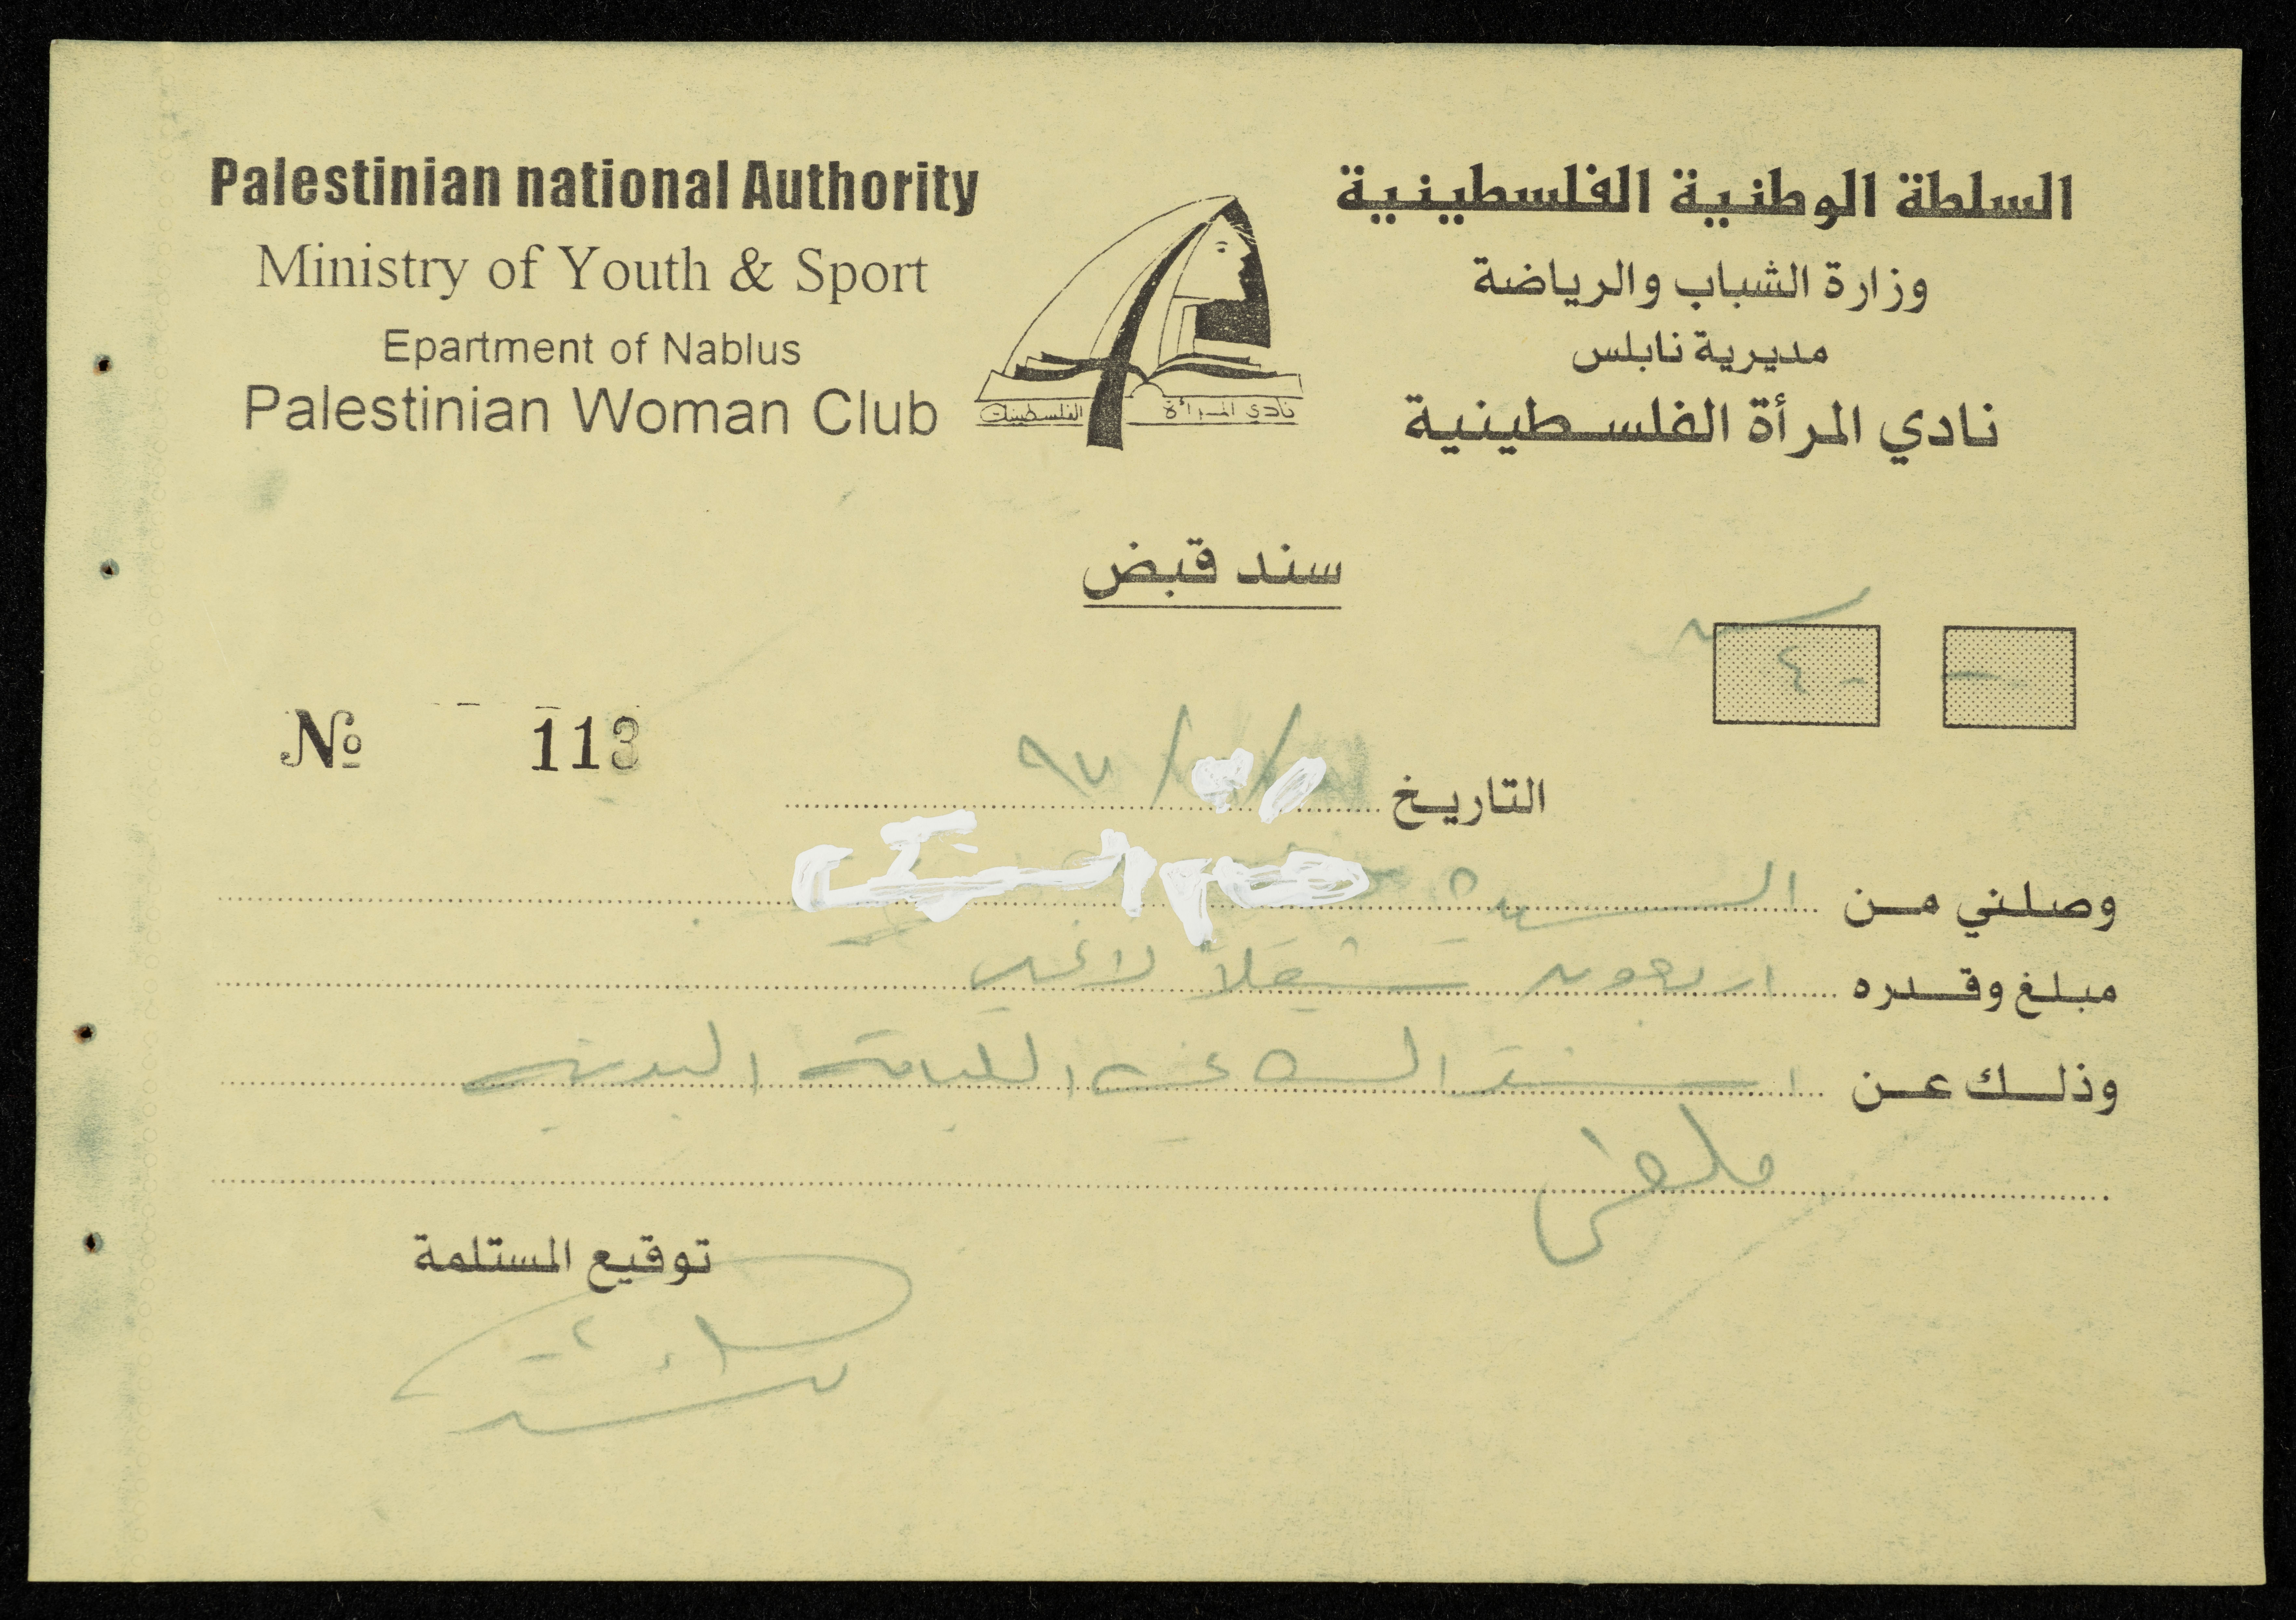 Palestinian national Authority
Ministry of Youth & Sport
Epartment of Nablus
Palestinian Woman Club
السلطة الوطنية الفلسطينية
وزارة الشباب والرياضة
مديرية نابلس
نادي المرأة الفلسطينية
نادي المرأة الفلسطينية
سند قبض
٤٠
№ 113
التاريخ / / ٩٧
وصلني من السيدة
مبلغ وقدره اربعون شيقلاً لا غير
وذلك عن اللياقة البدنية
توقيع المستلمة